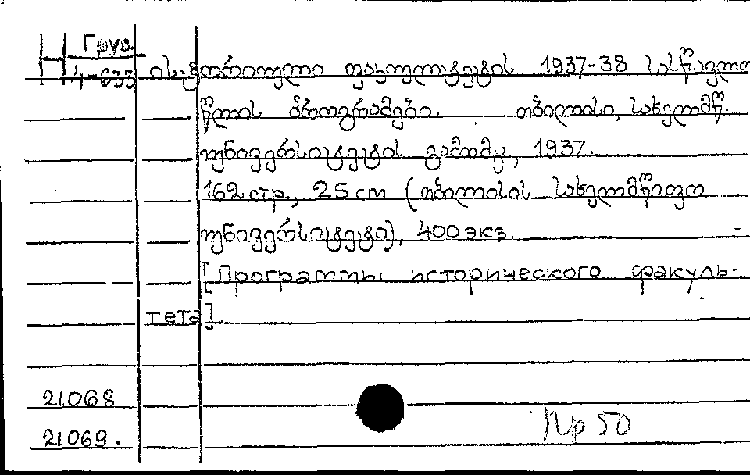 Груз.
4-633 ისტორიული ფაკულტეტის 1937-38 სასწავლო
წლის პროგრამები. თბილისი, სახელმწ.
უნივერსიტეტის გამომც, 1937.
162 стр., 25 см (თბილისის სახელმწიფო
უნივერსიტეტი), 400 экз.
[Программы исторического факуль-
тета].
21068
21069.
Пр 50